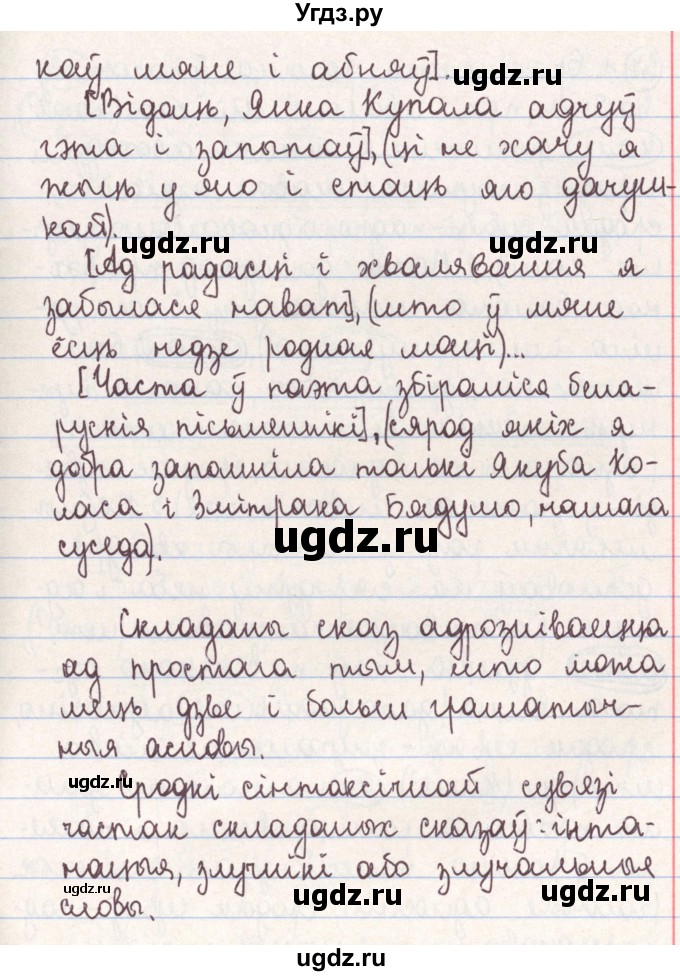 Угдз.ру
каў мяне і абняў].
[Відаць, Янка Купала адчуў
гэта і запытаў], (ці не хачу я
жыць у яго і стаць яго дачуш-
кай).
[Ад радасці і хвалявання я
забылася нават], (што ў мяне
ёсць недзе родная маці)...
[Часта ў паэта збіраліся бела-
рускія пісьменнікі], (сярод якіх я
добра запомніла толькі Якуба Ко-
ласа і Змітрака Бядулю, нашага
суседа).
Складаны сказ адрозніваецца
ад простага тым, што можа
мець дзве і больш граматыч-
ныя асновы.
Сродкі сінтаксічнай сувязі
частак складаных сказаў: інта-
нацыя, злучнікі або злучальныя
словы.
ugdz.ru
ugdz.ru
ugdz.ru
ugdz.ru
ugdz.ru
ugdz.ru
ugdz.ru
ugdz.ru
ugdz.ru
ugdz.ru
ugdz.ru
Угдз.ру